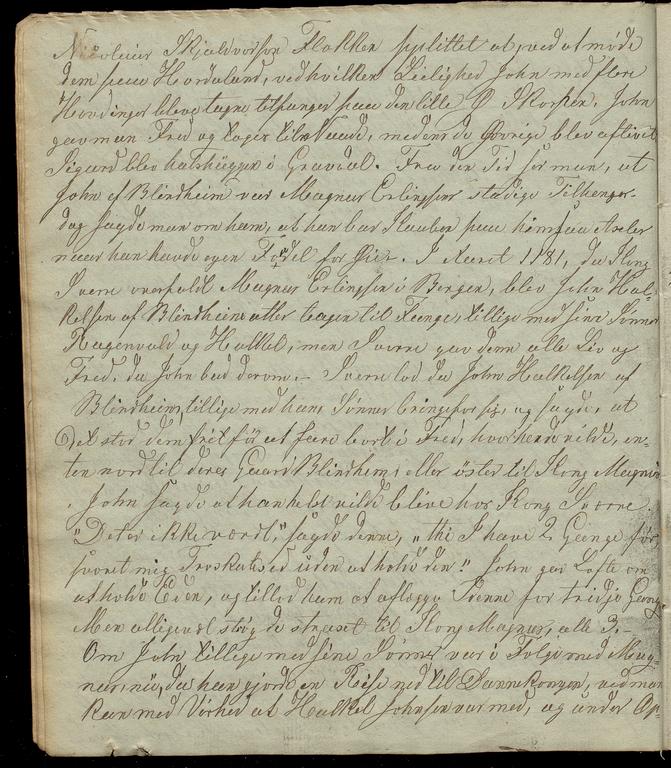 Nicolaus Skjaldvorson Flokken splittet at, ved at møde
dem paa Hordaland, ved hvilken Leilighed John med flere
Høvdinger bleve tagne tilfange paa den lille Ø Skorpen. John
gav man Fred og toges til Naade, medens de Øvrige blev aflivet
Sigurd blev halshuggen i Gravdal. Fra den Tid ser man, at
John af Blindheim var Magnus Erlingssøns stadige Tilhenger.
dog sagde man om ham, at han bar Kaaben paa begge Axler
naar han havde egen Fordel for Øie. I Aaret 1181, da Kong
Sverre overfaldt Magnus Erlingssøn i Bergen, blev John Hal-
kelsen af Blindheim atter tagen til Fange, tillige med sine Sønner
Ragenvald og Halkel, men Sverre gav dem alle Liv og
Fred, da John bad derom. – Sverre lod da John Halkelsen af
Blindheim, tillige med hans Sønner bringe for sig, og sagde, at
Det stod dem frit for at fare bort i Fred, hvorhen de vilde, en-
ten nord til deres Gaard Blindheim, eller øster til Kong Magnus
. John sagde at han helst vilde blive hos Kong Sverre.
"Det er ikke værdt," sagde denne, "thi I have 2 Gange før
svoret mig Troskabsed uden at holde den." John gav Løfte om
at holde Eden, og tillod ham at aflægge Denne for tridje Gang.
Men alligevel strøg de straxt til Kong Magnus, alle 3. –
Om John tillige med sine Sønner var i Følge med Mag-
nus nu, da han gjorde en Reise ned til Dannekongen, ved man
kun med Vished at Halkel Johnsøn var med, og under Op-